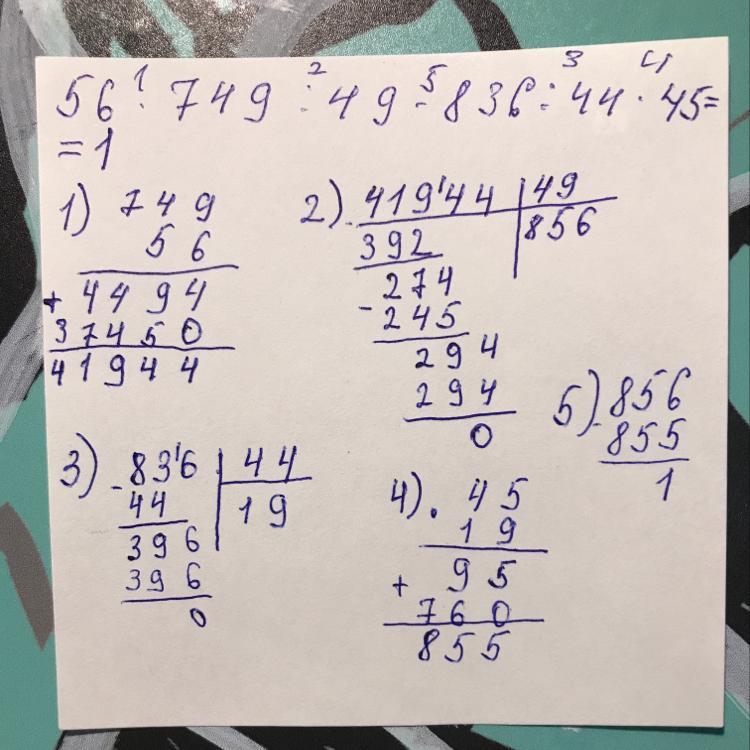 1 2 5 3 4
56 · 749 : 49 - 836 : 44 · 45 =
= 1
1) 749
56
+ 4494
37450
41944
2) - 419'44 | 49
392 | 856
274
- 245
294
294
0
3) - 83'6 | 44
44 | 19
396
396
0
4) · 45
19
+ 95
760
855
5) - 856
855
1